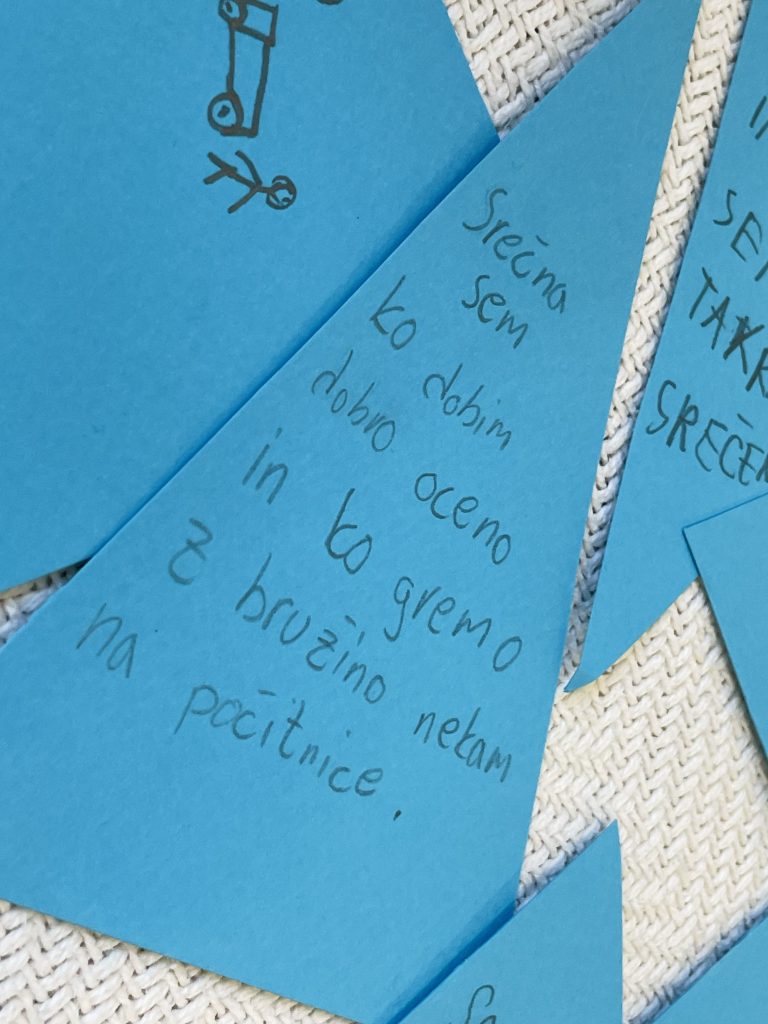 Srečna
sem
ko dobim
dobro oceno
in ko gremo
z bružino nekam
na počitnice.
SREČEN